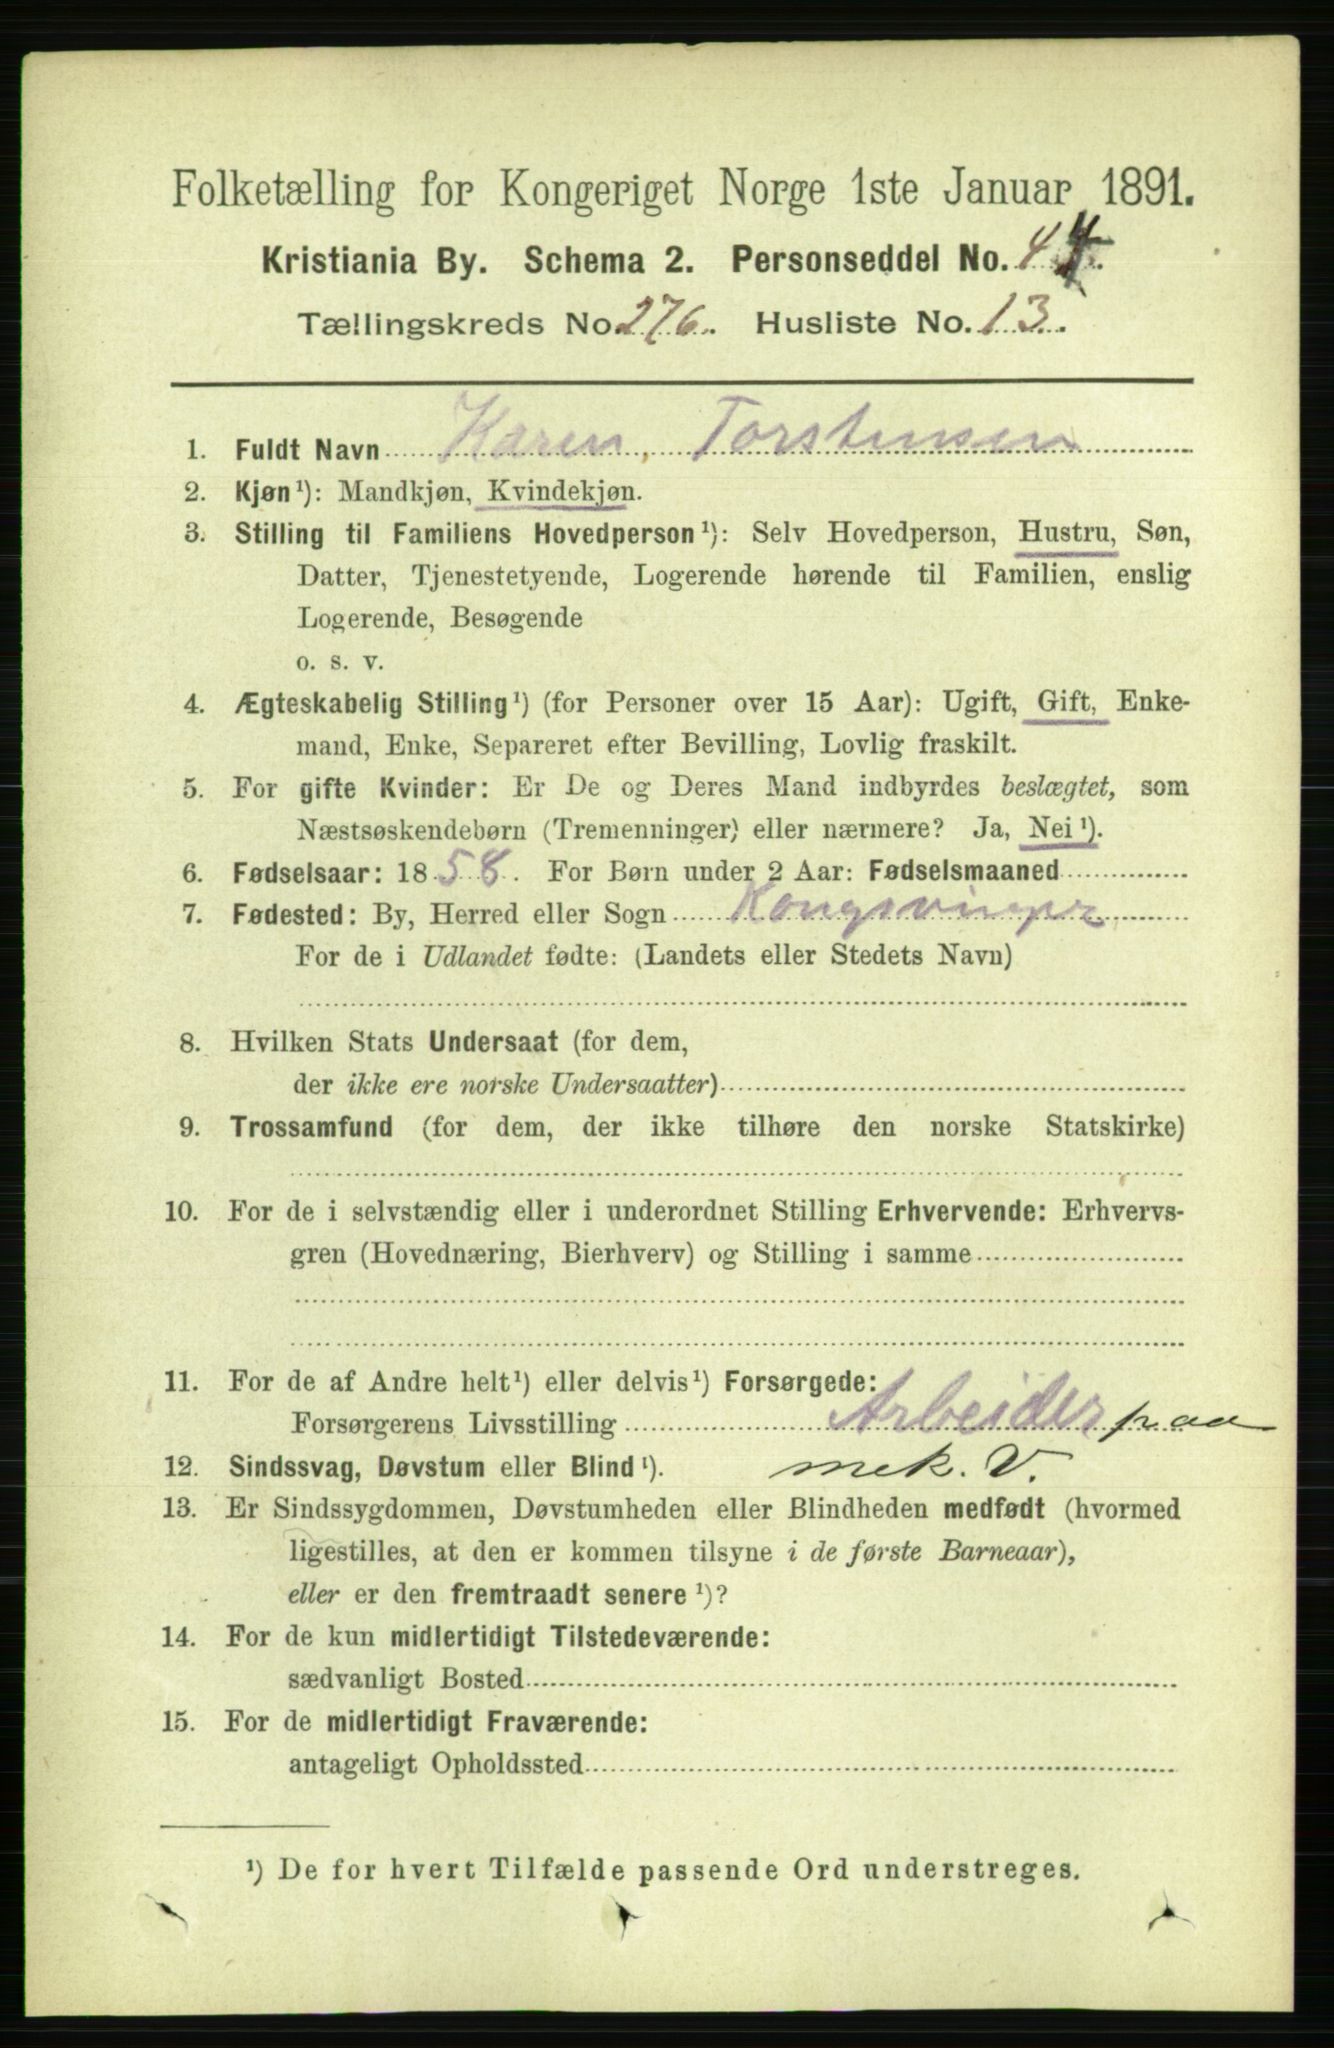 Folketælling for Kongeriget Norge 1ste Januar 1891.
Kristiania By. Schema 2. Personseddel No. 44.
Tællingskreds No. 276. Husliste No. 13.
1. Fuldt Navn Karen Torstensen
2. Kjøn¹): Mandkjøn, Kvindekjøn.
3. Stilling til Familiens Hovedperson¹): Selv Hovedperson, Hustru, Søn,
Datter, Tjenestetyende, Logerende hørende til Familien, enslig
Logerende, Besøgende
o. s. v.
4. Ægteskabelig Stilling¹) (for Personer over 15 Aar): Ugift, Gift, Enke-
mand, Enke, Separeret efter Bevilling, Lovlig fraskilt.
5. For gifte Kvinder: Er De og Deres Mand indbyrdes beslægtet, som
Næstsøskendebørn (Tremenninger) eller nærmere? Ja, Nei¹).
6. Fødselsaar: 1858. For Børn under 2 Aar: Fødselsmaaned
7. Fødested: By, Herred eller Sogn Kongsvinger
For de i Udlandet fødte: (Landets eller Stedets Navn)
8. Hvilken Stats Undersaat (for dem,
der ikke ere norske Undersaatter)
9. Trossamfund (for dem, der ikke tilhøre den norske Statskirke)
10. For de i selvstændig eller i underordnet Stilling Erhvervende: Erhvervs-
gren (Hovednæring, Bierhverv) og Stilling i samme
11. For de af Andre helt¹) eller delvis¹) Forsørgede:
Forsørgerens Livsstilling Arbeider paa
12. Sindssvag, Døvstum eller Blind¹). mek. V.
13. Er Sindssygdommen, Døvstumheden eller Blindheden medfødt (hvormed
ligestilles, at den er kommen tilsyne i de første Barneaar),
eller er den fremtraadt senere¹)?
14. For de kun midlertidigt Tilstedeværende:
sædvanligt Bosted
15. For de midlertidigt Fraværende:
antageligt Opholdssted
¹) De for hvert Tilfælde passende Ord understreges.